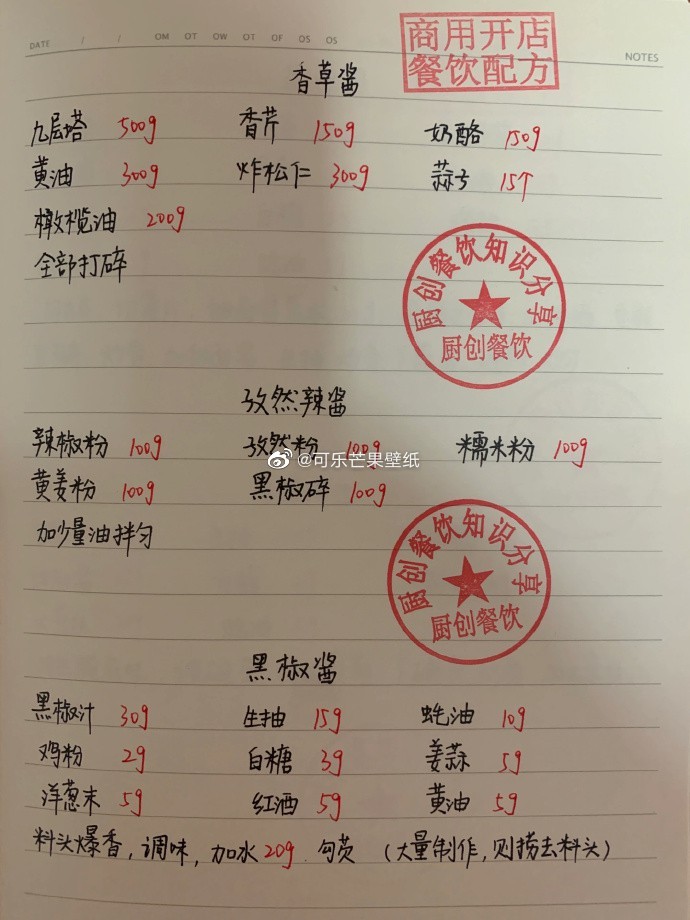 商用开店
餐饮配方
DATE / / OM OT OW OT OF OS OS
NOTES
香草酱
九层塔 500g 香芹 150g 奶酪 150g
黄油 300g 炸松仁 300g 蒜子 15个
橄榄油 200g
全部打碎
厨创餐饮知识分享
厨创餐饮
孜然辣酱
辣椒粉 100g 孜然粉 100g 糯米粉 100g
@可乐芒果壁纸
黄姜粉 100g 黑椒碎 100g
加少量油拌匀
厨创餐饮知识分享
厨创餐饮
黑椒酱
黑椒汁 30g 生抽 15g 蚝油 10g
鸡粉 2g 白糖 3g 姜蒜 5g
洋葱末 5g 红酒 5g 黄油 5g
料头爆香，调味，加水20g 勾芡 （大量制作，则捞去料头）